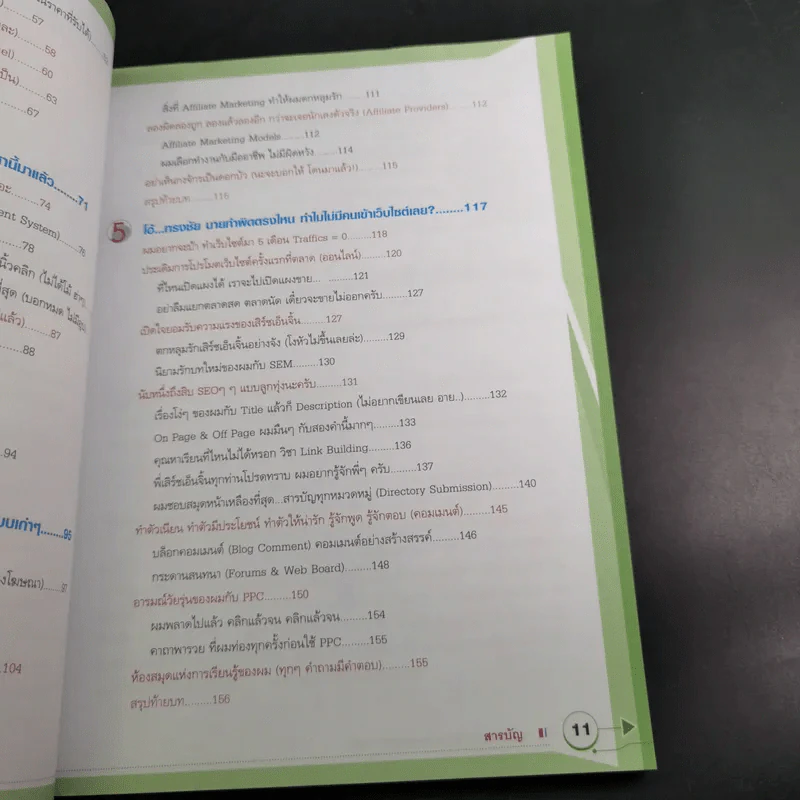 นราคาที่รับได้
57
58
60
เป็น)........63
67
กนี้มาแล้ว........71
74
ent System)
78
88
94
บบเก่าๆ........95
งโฆษณา)....97
104
สิ่งที่ Affiliate Marketing ทำให้ผมตกหลุมรัก......111
ลองผิดลองถูก ลองแล้วลองอีก กว่าจะเจอนักเลงตัวจริง (Affiliate Providers)......112
Affiliate Marketing Models.......112
ผมเลือกทำงานกับมืออาชีพ ไม่มีผิดหวัง.......114
อย่าเห็นกงจักรเป็นดอกบัว (นะจะบอกให้ โดนมาแล้ว!).......115
สรุปท้ายบท.......116
5 โอ้...ทรงชัย นายทำผิดตรงไหน ทำไมไม่มีคนเข้าเว็บไซต์เลย?........117
ผมอยากจะบ้า ทำเว็บไซต์มา 5 เดือน Traffics = 0........118
ประเดิมการโปรโมตเว็บไซต์ครั้งแรกที่ตลาด (ออนไลน์)........120
ที่ไหนเปิดแผงได้ เราจะไปเปิดแผงขาย... ........121
อย่าลืมแยกตลาดสด ตลาดนัด เดี๋ยวจะขายไม่ออกครับ........127
เปิดใจยอมรับความแรงของเสิร์ชเอ็นจิ้น........127
ตกหลุมรักเสิร์ชเอ็นจิ้นอย่างจัง (โงหัวไม่ขึ้นเลยล่ะ)........129
นิยามรักบทใหม่ของผมกับ SEM........130
นับหนึ่งถึงสิบ SEOๆ ๆ แบบลูกทุ่งนะครับ........131
เรื่องโง่ๆ ของผมกับ Title แล้วก็ Description (ไม่อยากเขียนเลย อาย..)........132
On Page & Off Page ผมมึนๆ กับสองคำนี้มากๆ........133
คุณหาเรียนที่ไหนไม่ได้หรอก วิชา Link Building........136
พี่เสิร์ชเอ็นจิ้นทุกท่านโปรดทราบ ผมอยากรู้จักพี่ๆ ครับ........137
ผมชอบสมุดหน้าเหลืองที่สุด...สารบัญทุกหมวดหมู่ (Directory Submission)........140
ทำตัวเนียน ทำตัวมีประโยชน์ ทำตัวให้น่ารัก รู้จักพูด รู้จักตอบ (คอมเมนต์)........145
บล็อกคอมเมนต์ (Blog Comment) คอมเมนต์อย่างสร้างสรรค์........146
กระดานสนทนา (Forums & Web Board)........148
อารมณ์วัยรุ่นของผมกับ PPC........150
ผมพลาดไปแล้ว คลิกแล้วจน คลิกแล้วจน........154
คาถาพารวย ที่ผมท่องทุกครั้งก่อนใช้ PPC........155
ห้องสมุดแห่งการเรียนรู้ของผม (ทุกๆ คำถามมีคำตอบ)........155
สรุปท้ายบท........156
สารบัญ 11